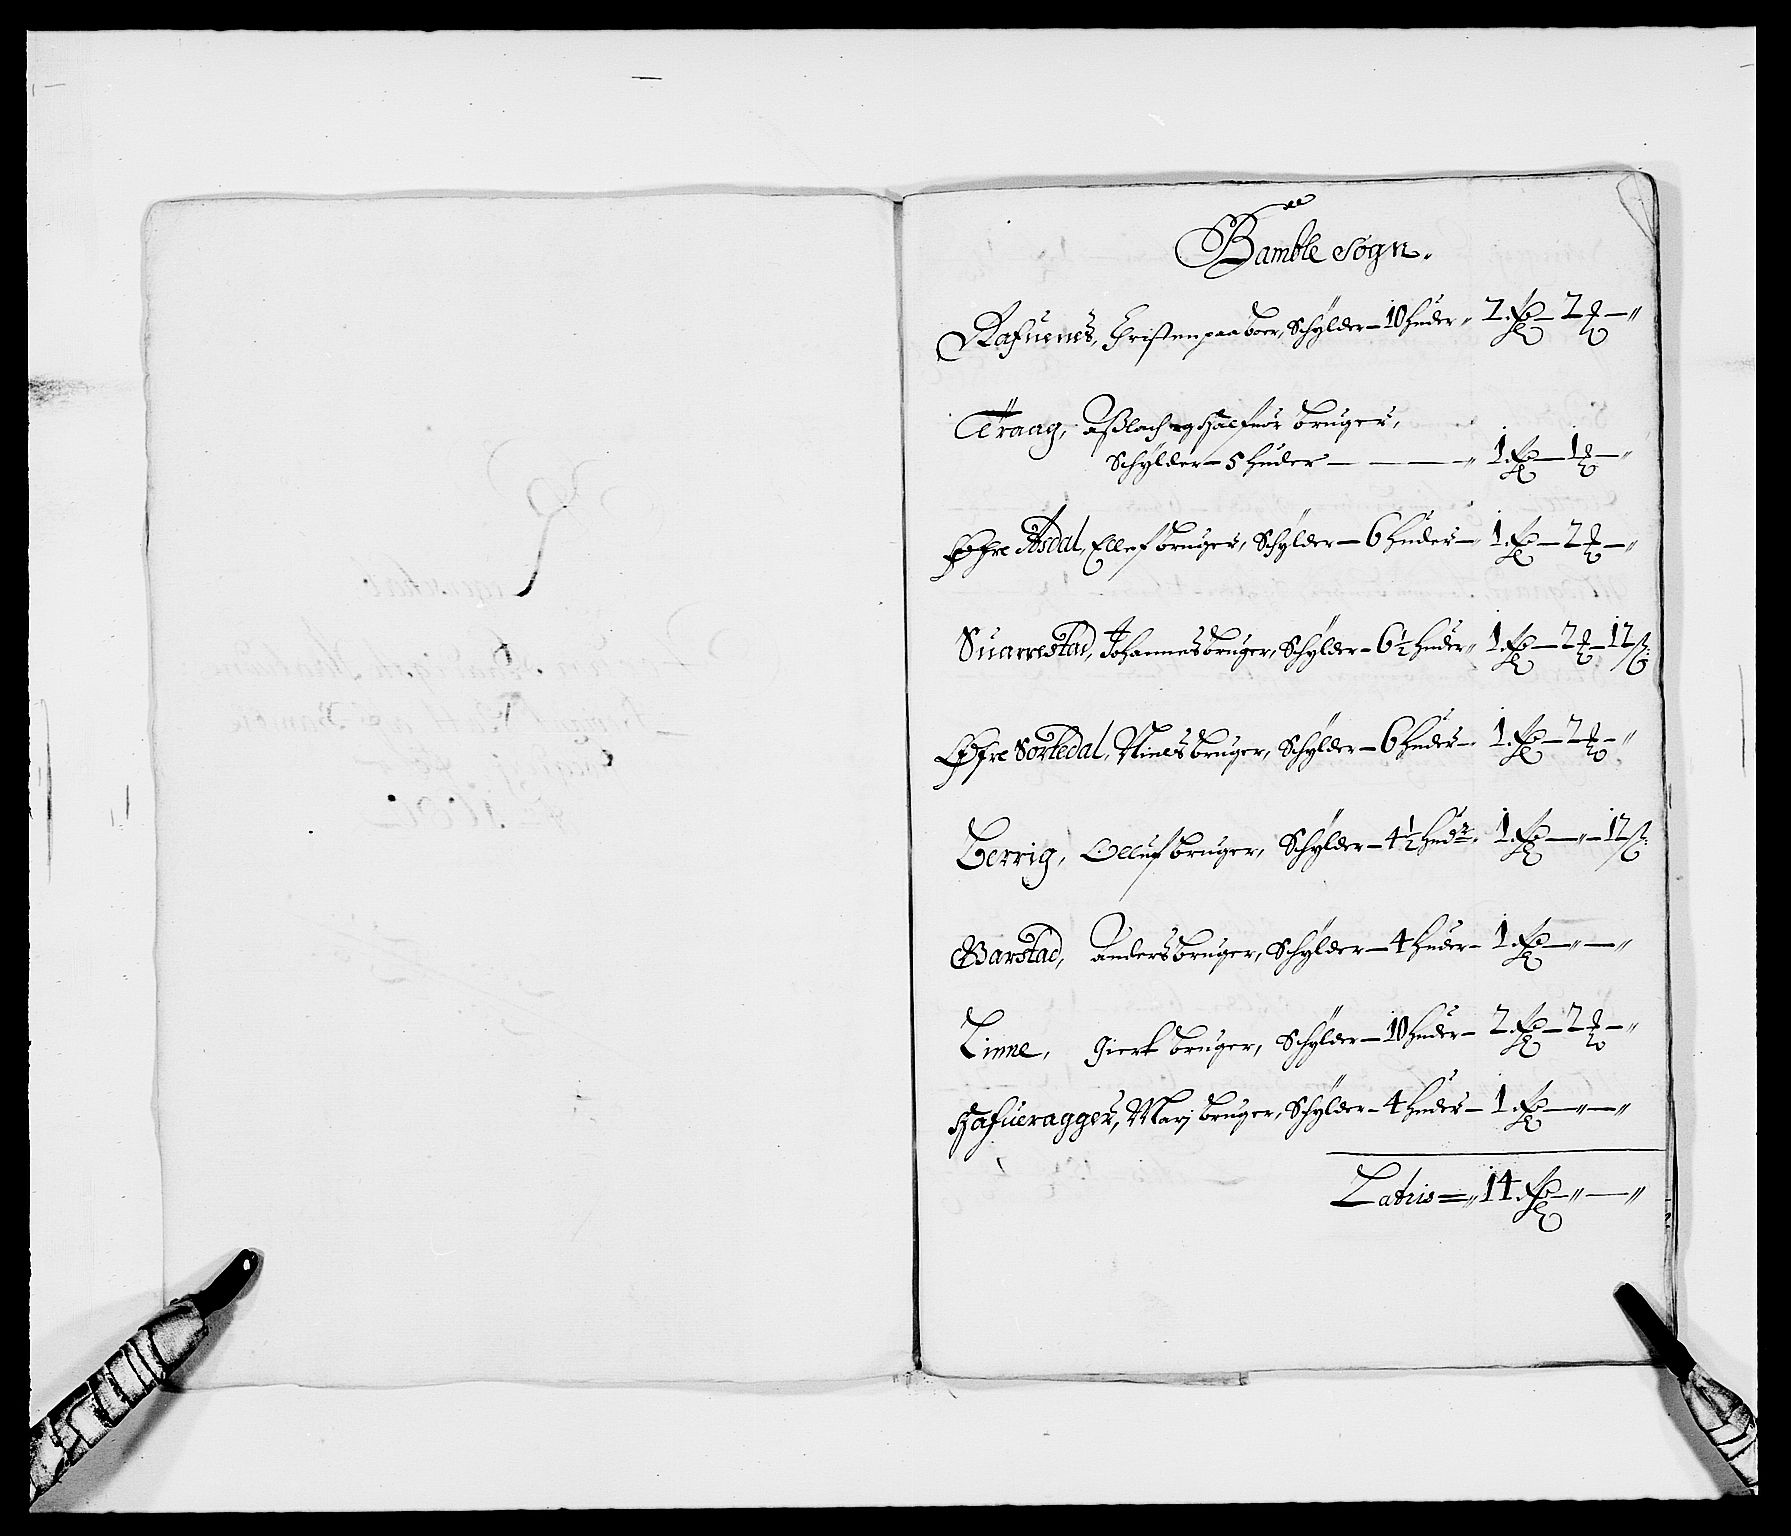 Bamble Sogn.
Rafuenes, Christen paaboer, Schÿlder – 10 huder „ 2 Rdr – 2 ort – „
Traag, Aßlach og Halfuor bruger,
Schÿlder – 5 huder – – – „ 1 Rdr – 1 ort – „
Øfre Asdal, Ellef bruger, Schÿlder – 6 huder – „ 1 Rdr – 2 ort – „
Suarrestad, Johannes bruger, Schÿlder – 6½ huder „ 1 Rdr – 2 ort – 12 ß:
Øfre Sortedal, Niels bruger, Schÿlder – 6 huder – „ 1 Rdr – 2 ort – „
Berrig, Olluf bruger, Schÿlder – 4½ hudr „ 1 Rdr – „ – 12 ß:
Barstad, Anders bruger, Schÿlder – 4 huder – 1 Rdr – „ – „
Linne, Giert bruger, Schÿlder – 10 huder – 2 Rdr – 2 ort – „
Hafueragger, Marj bruger, Schÿlder – 4 huder – 1 Rdr – „ – „
Latus = „ 14 Rdr – „ – „